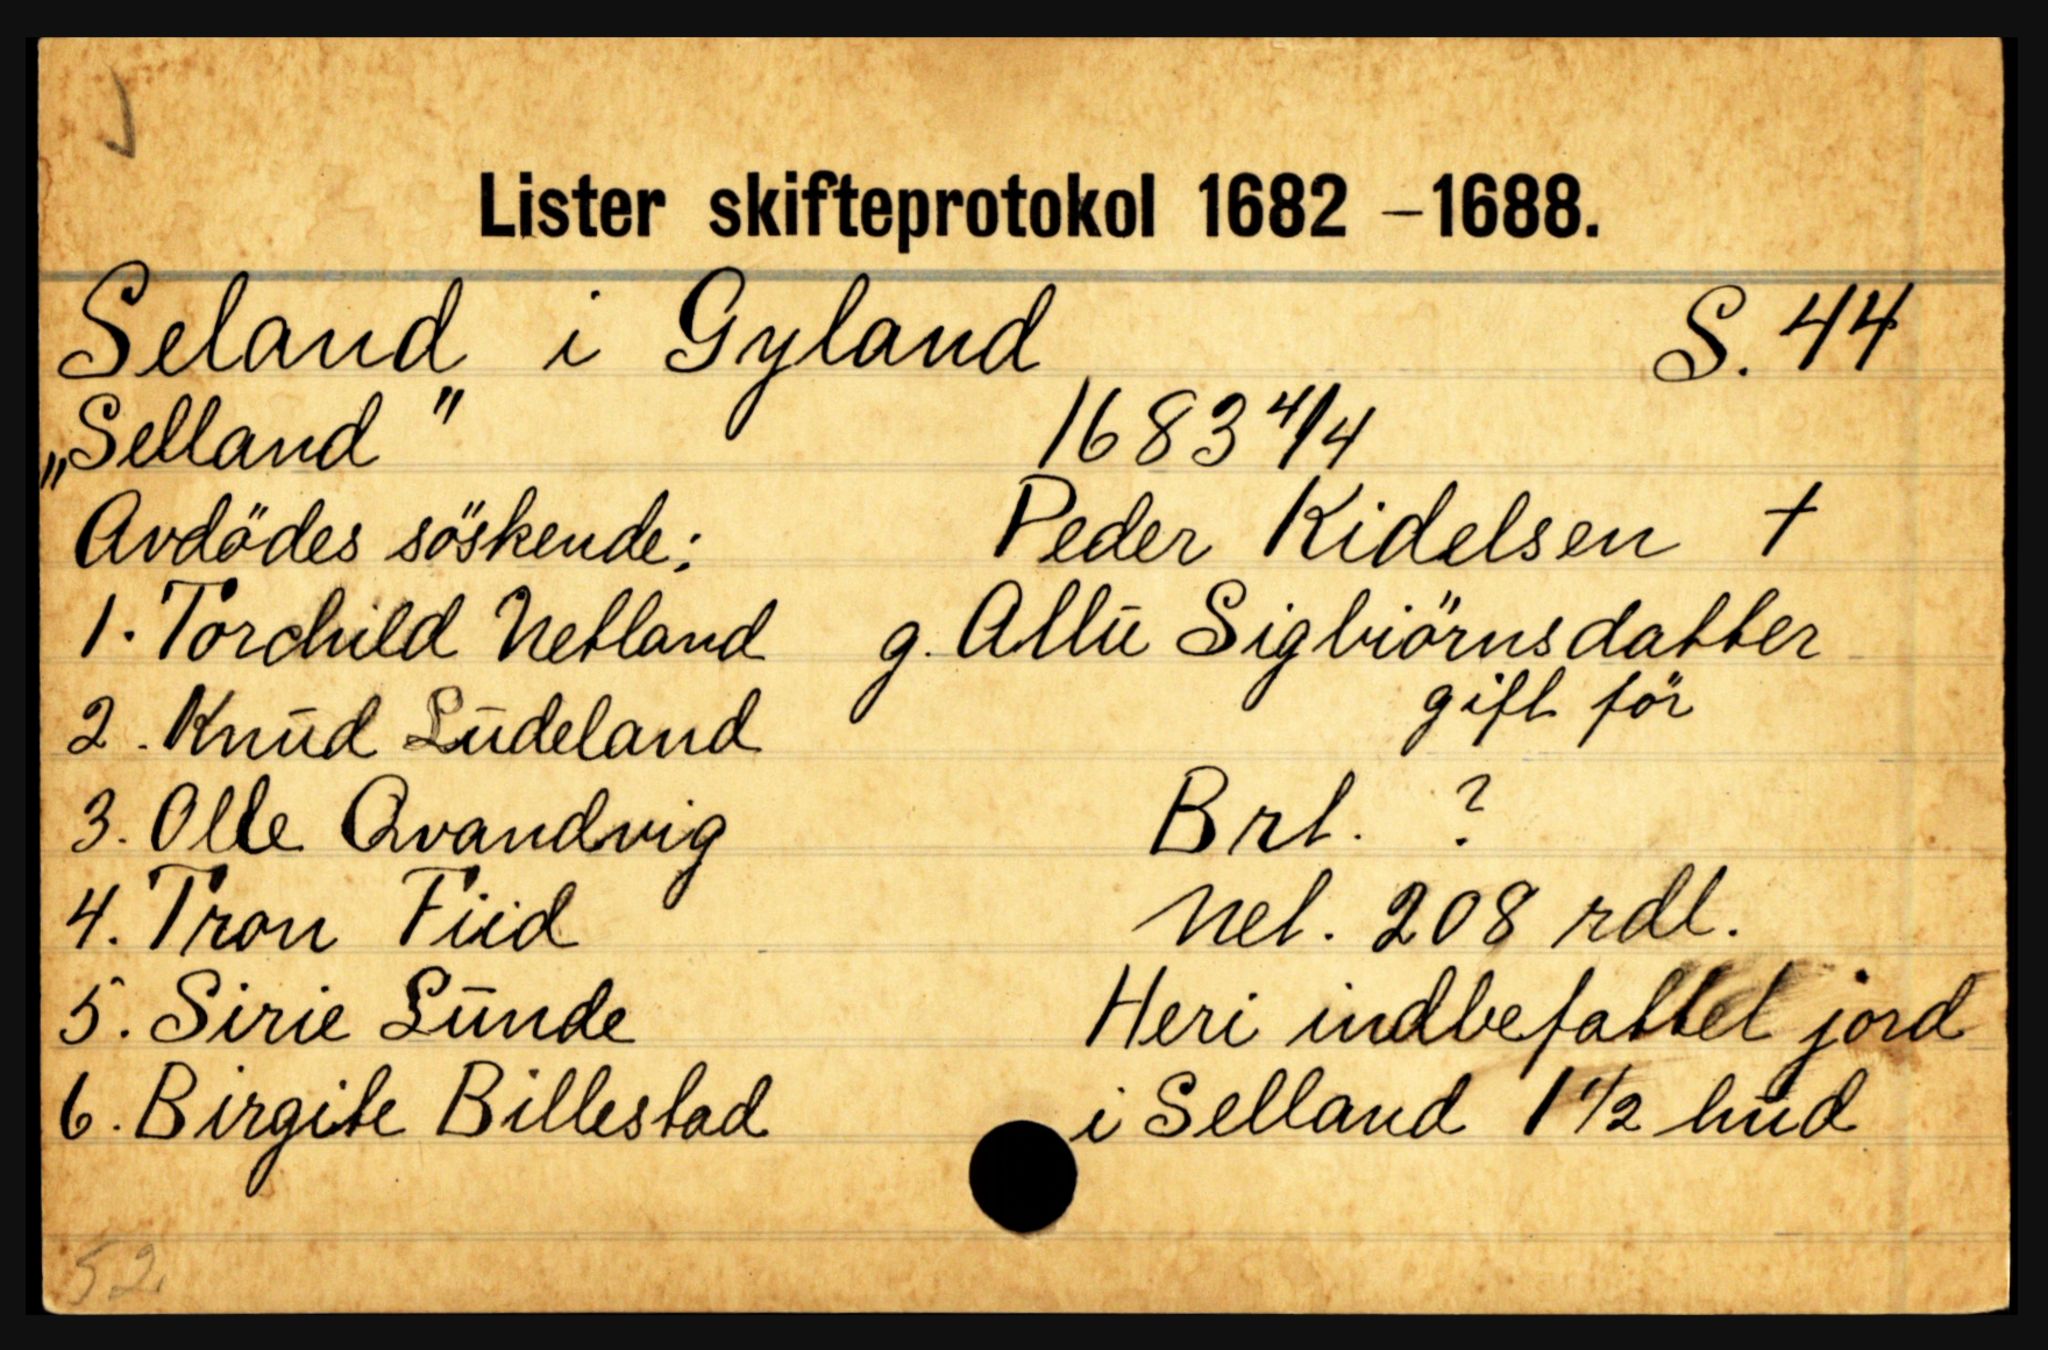 Lister skifteprotokol 1682 – 1688.
Seland i Gyland S. 44
„Selland" 1683 4/4
Avdödes söskende: Peder Kidelsen †
1. Torchild Netland g. Allū Sigbiörnsdatter
gift för
2. Knūd Lūdeland
3. Olle Qvandvig Brt. ?
4. Tron Fiid Net. 208 rdl.
5. Sirie Lūnde Heri indbefattet jord
6. Birgite Billestad i Selland 1 1/2 hūd
52